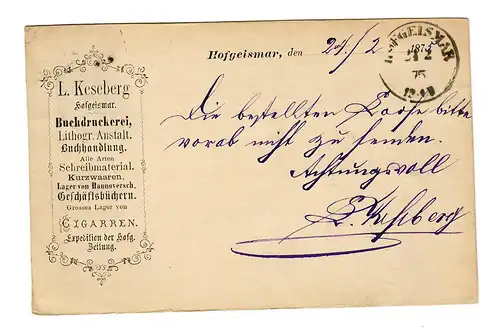 L. Keseberg
Hofgeismar.
Buchdruckerei,
Lithogr. Anstalt.
Buchhandlung.
Alle Arten
Schreibmaterial.
Kurzwaaren.
Lager von Hannoversch.
Geschäftsbüchern.
Grosses Lager von
CIGARREN.
Expedition der Hofg.
Zeitung.
Hofgeismar, den 24/2 1875
HOFGEISMAR
75
Die bestellten Loose bitte
vorab nicht zu senden.
Achtungsvoll
L. Keseberg